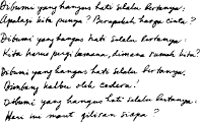 Dibumi yang hangus hati selalu bertanya:
Apalagi kita punya? Berapakah harga cinta?
Dibumi yang hangus hati selalu bertanya:
Kita harus pergi kemana, dimana rumah kita?
Dibumi yang hangus hati selalu bertanya,
Bimbang kalbu oleh cedera:
Dibumi yang hangus hati selalu bertanya:
Hari ini maut giliran siapa?